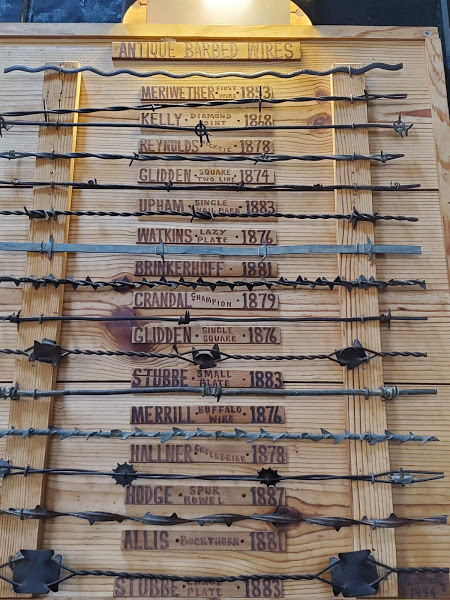 ANTIQUE BARBED WIRES
MERIWETHER · FIRST WIRE · 1853
KELLY · DIAMOND POINT · 1868
REYNOLDS · NECKTIE · 1878
GLIDDEN · SQUARE TWO LINE · 1874
UPHAM · SINGLE NAIL BARB · 1883
WATKINS · LAZY PLATE · 1876
BRINKERHOFF · 1881
CRANDAL · CHAMPION · 1879
GLIDDEN · SINGLE SQUARE · 1876
STUBBE · SMALL PLATE · 1883
MERRILL · BUFFALO WIRE · 1876
HALLNER · 1878
HODGE · SPUR ROWEL · 1887
ALLIS · BUCKTHORN · 1881
STUBBE · PLATE · 1883
1994